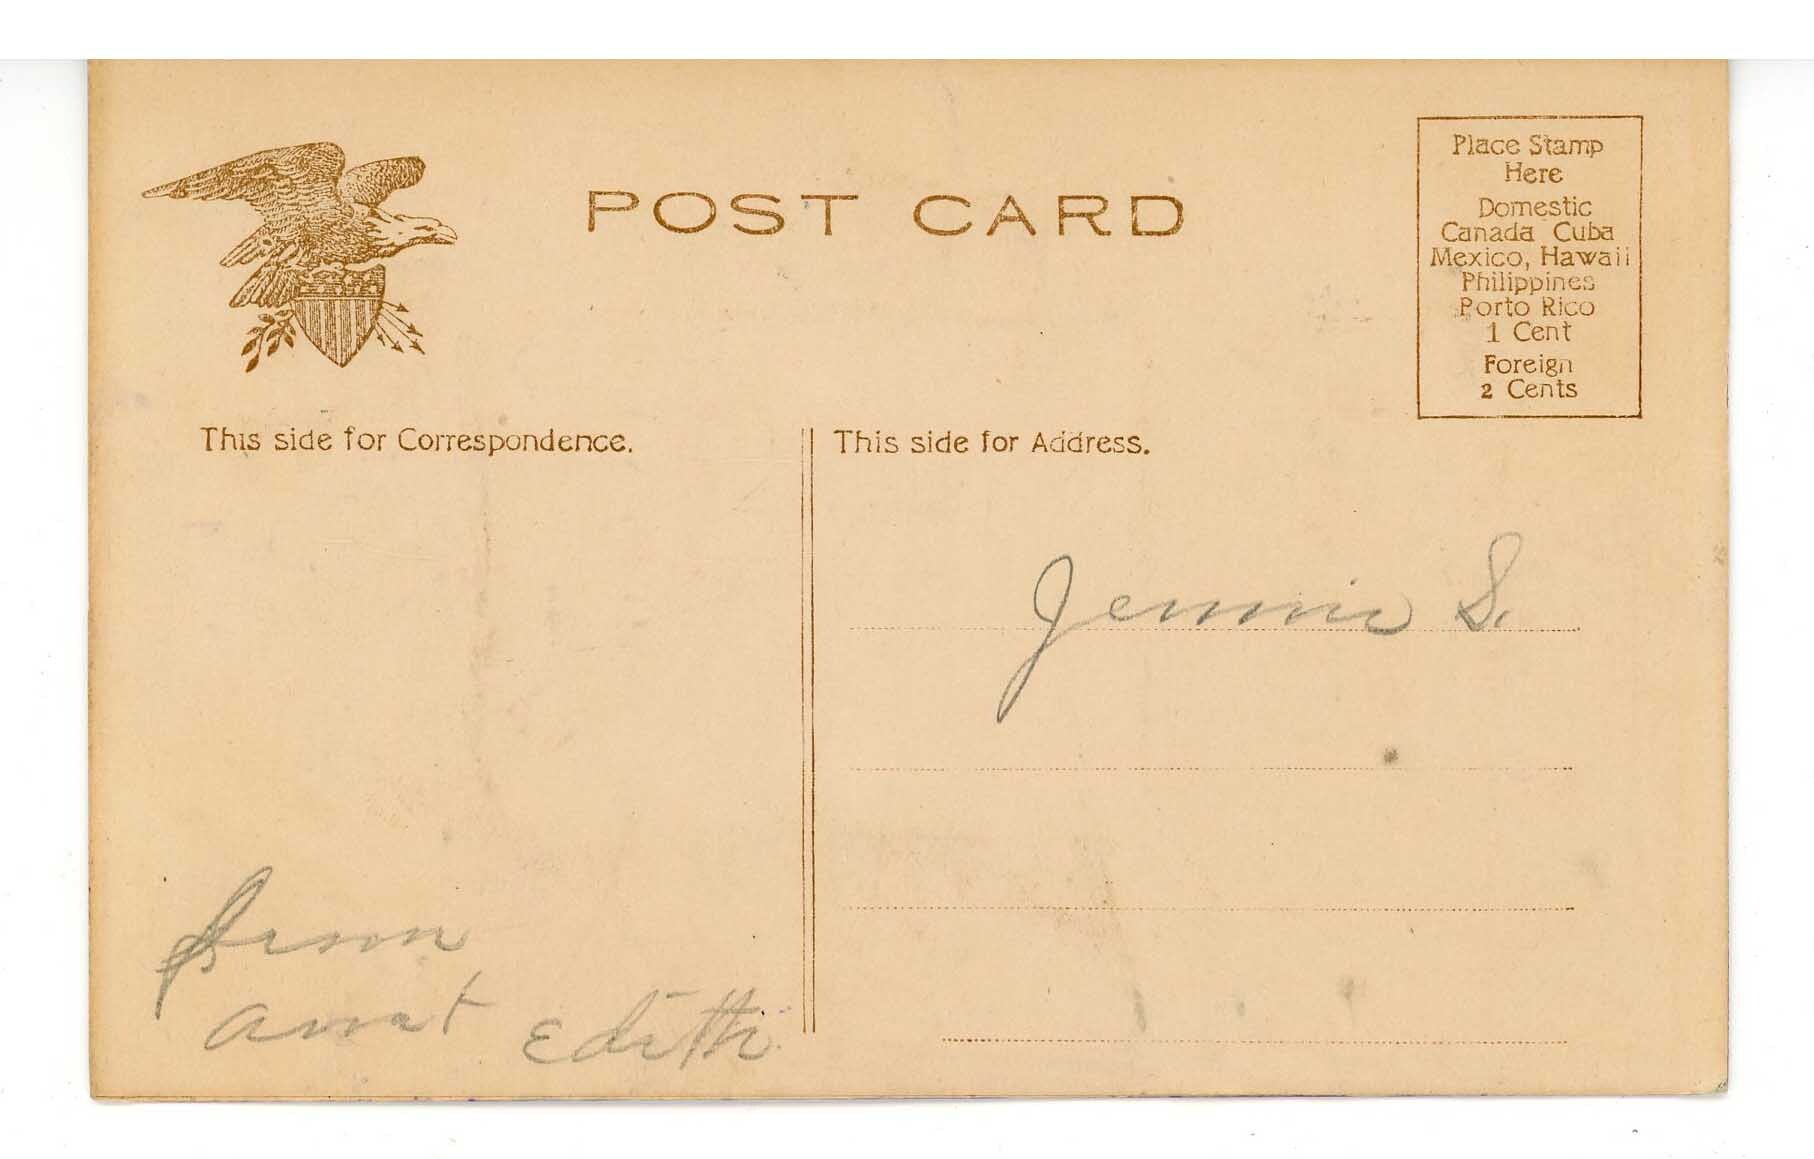 POST CARD
Place Stamp
Here
Domestic
Canada Cuba
Mexico, Hawaii
Philippines
Porto Rico
1 Cent
Foreign
2 Cents
This side for Correspondence.
This side for Address.
Jennie S.
From
Aunt Edith.